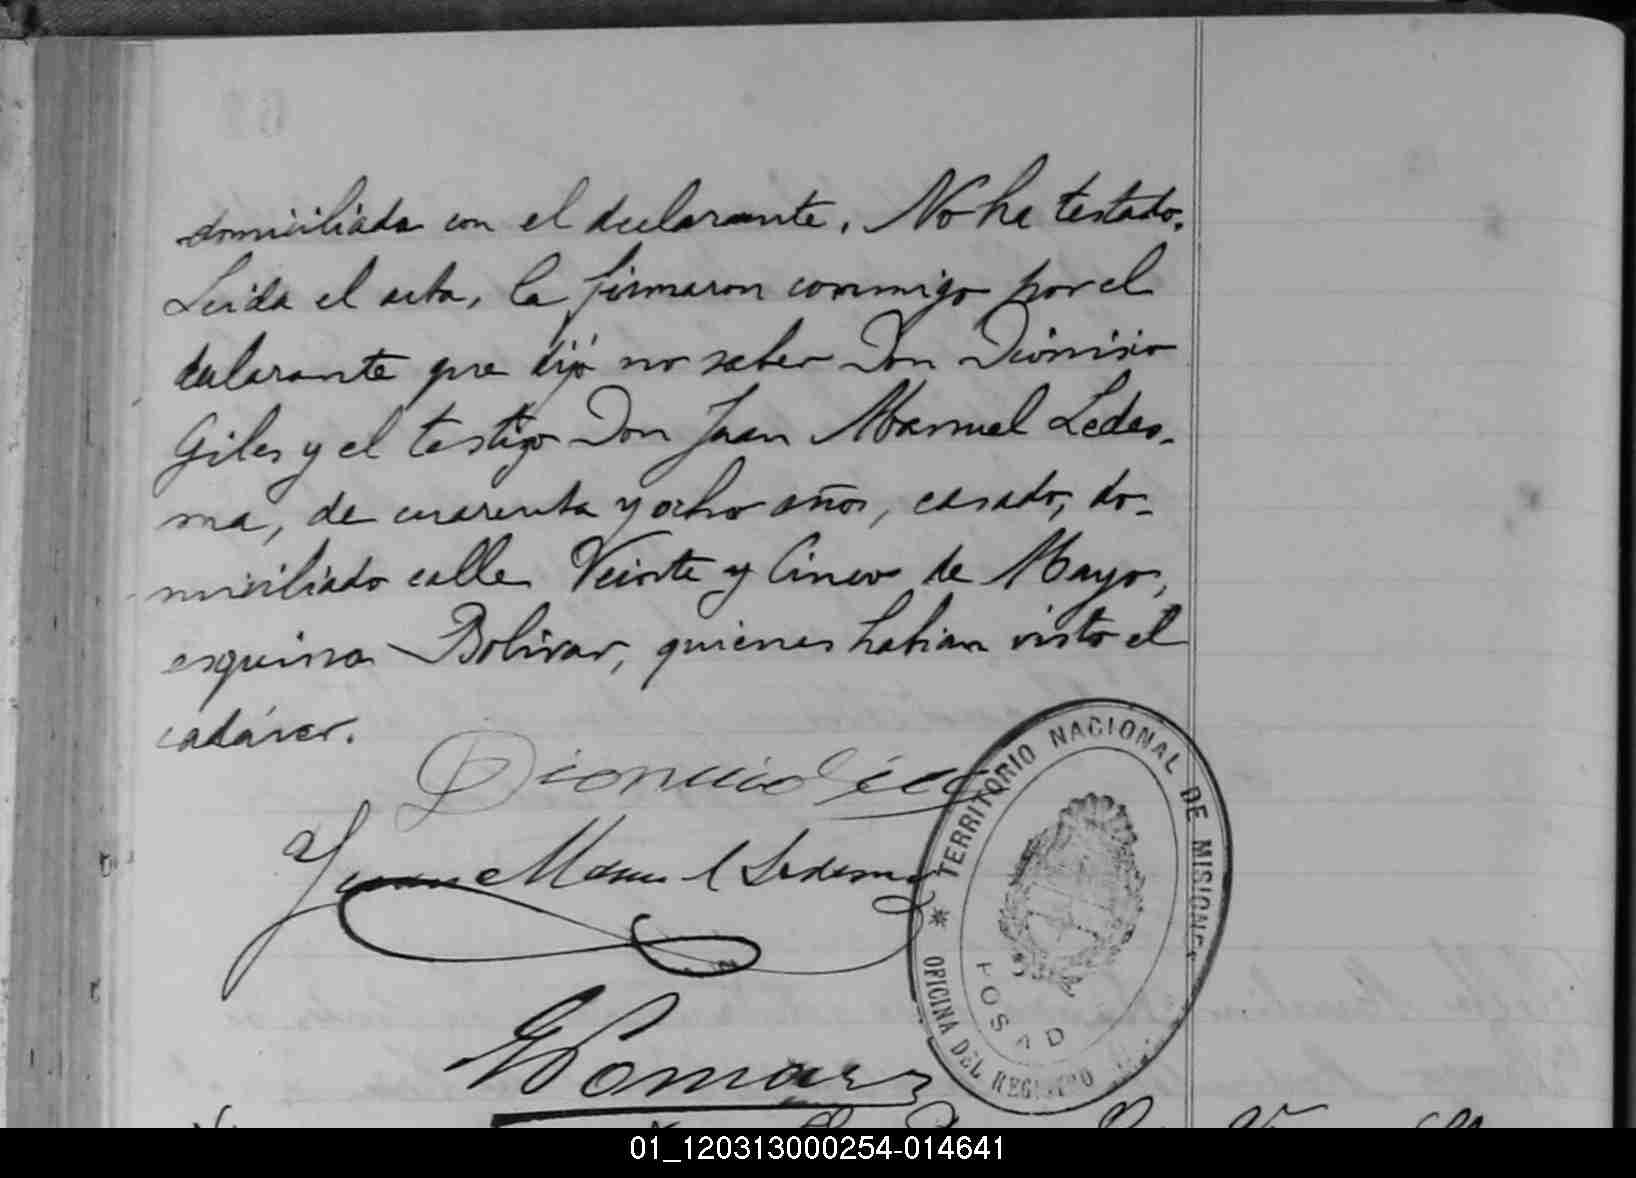 domiciliada con el declarante. No ha testado.
Leida el acta, la firmaron conmigo por el
declarante que dijó no saber Don Dionisio
Giles y el testigo Don Juan Manuel Ledes-
ma, de cuarenta y ocho años, casado, do-
miciliado calle Veinte y Cinco de Mayo,
esquina Bolivar, quienes habian visto el
cadáver.
Dionicio
Juan Manuel Ledesma
TERRITORIO NACIONAL DE MISIONES
OFICINA DEL REGISTRO
POSAD
01_120313000254-014641